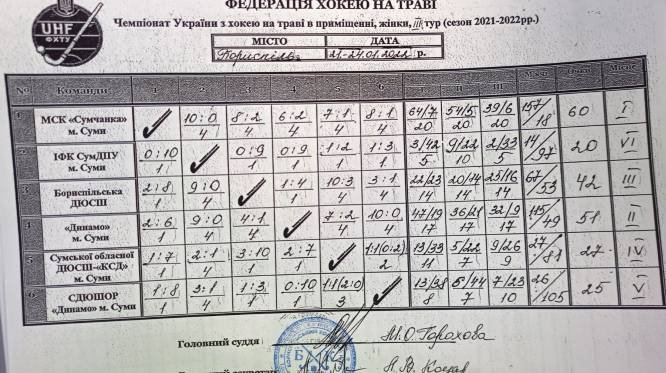 ФЕДЕРАЦІЯ ХОКЕЮ НА ТРАВІ
UHF
ФХТУ
Чемпіонат України з хокею на траві в приміщенні, жінки, III тур (сезон 2021-2022рр.)
МІСТО ДАТА
Бориспіль 21-24.01.2022 р.
№ Команди 1 2 3 4 5 6 I II III М'ячі Очки Місце
1 МСК «Сумчанка» м. Суми 10:0 4 8:2 4 6:2 4 7:1 4 8:1 4 64/7 20 54/5 20 39/6 20 157/18 60 I
2 ІФК СумДПУ м. Суми 0:10 1 0:9 1 0:9 1 1:2 1 1:3 1 3/42 5 9/22 10 2/33 5 14/97 20 VI
3 Бориспільська ДЮСШ 2:8 1 9:0 4 1:4 1 10:3 4 3:1 4 22/23 14 20/14 14 25/16 14 67/53 42 III
4 «Динамо» м. Суми 2:6 1 9:0 4 4:1 4 7:2 4 10:0 4 47/19 17 36/21 17 32/9 17 115/49 51 II
5 Сумської обласної ДЮСШ-«КСД» м. Суми 1:7 1 2:1 4 3:10 1 2:7 1 1:1(0:2) 2 13/33 11 5/22 7 9/26 9 27/81 27 IV
6 СДЮШОР «Динамо» м. Суми 1:8 1 3:1 4 1:3 1 0:10 1 1:1(2:0) 3 13/38 8 5/44 7 7/23 10 26/105 25 V
Головний суддя М.О. Горохова